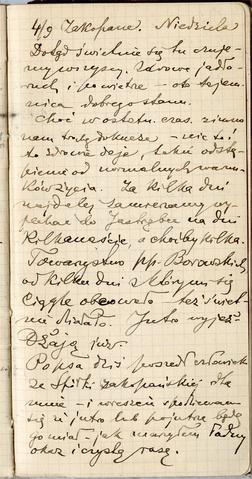 4/9 Zakopane. Niedziela
Dotąd świetnie się tu czuje-
my wszyscy. Zdrowe jedze-
nie i powietrze – oto tajem-
nica dobrego stanu.
Choć w ostatn. czas. zimno
nam trochę dokucza – nic to!
to zdrowie daje, takie odstą-
pienie od normalnych warun-
ków życia. Za kilka dni
najdalej zamierzamy wy-
jechać do Jastrzębca na dni
kilkanaście, a choćby kilka.
Towarzystwo pp. Borowskich,
od kilku dni z którym się
ciągle obcowało też świet-
nie działało. Jutro wyjeż-
dżają już.
Po psa dziś poszedł człowiek
ze Spółki zakopiańskiej dla
mnie – i wreszcie spodziewam
się że jutro lub pojutrze będę
go miał – jak marzyłem ładny
okaz i czystą rasę.